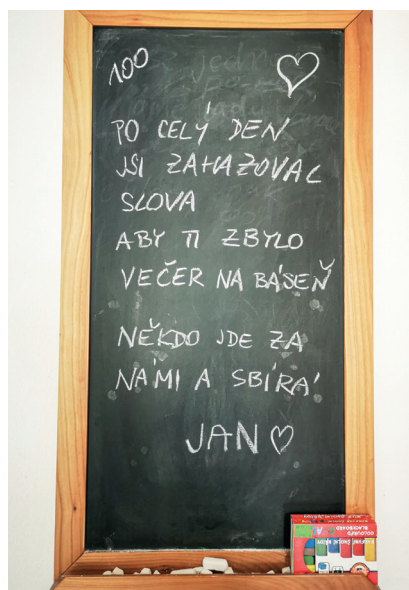 100 ♡
PO CELÝ DEN
JSI ZAHAZOVAL
SLOVA
ABY TI ZBYLO
VEČER NA BÁSEŇ
NĚKDO JDE ZA
NÁMI A SBÍRÁ
JAN ♡
COLOURED
BLACKBOARD